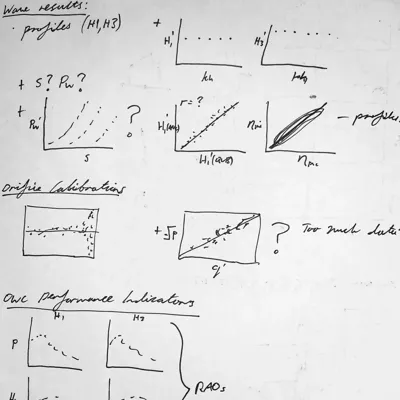 Wave results:
· profiles (H1, H3)
+ H1'
kh
H3'
+ S? Pw?
+ Pw'
S
?
r = ?
H1'(
H1'(
— profiles.
Orifice Calibrations
+ √P
q'
? Too much data
OWC Performance Indicators
H1
H3
P
RAOs